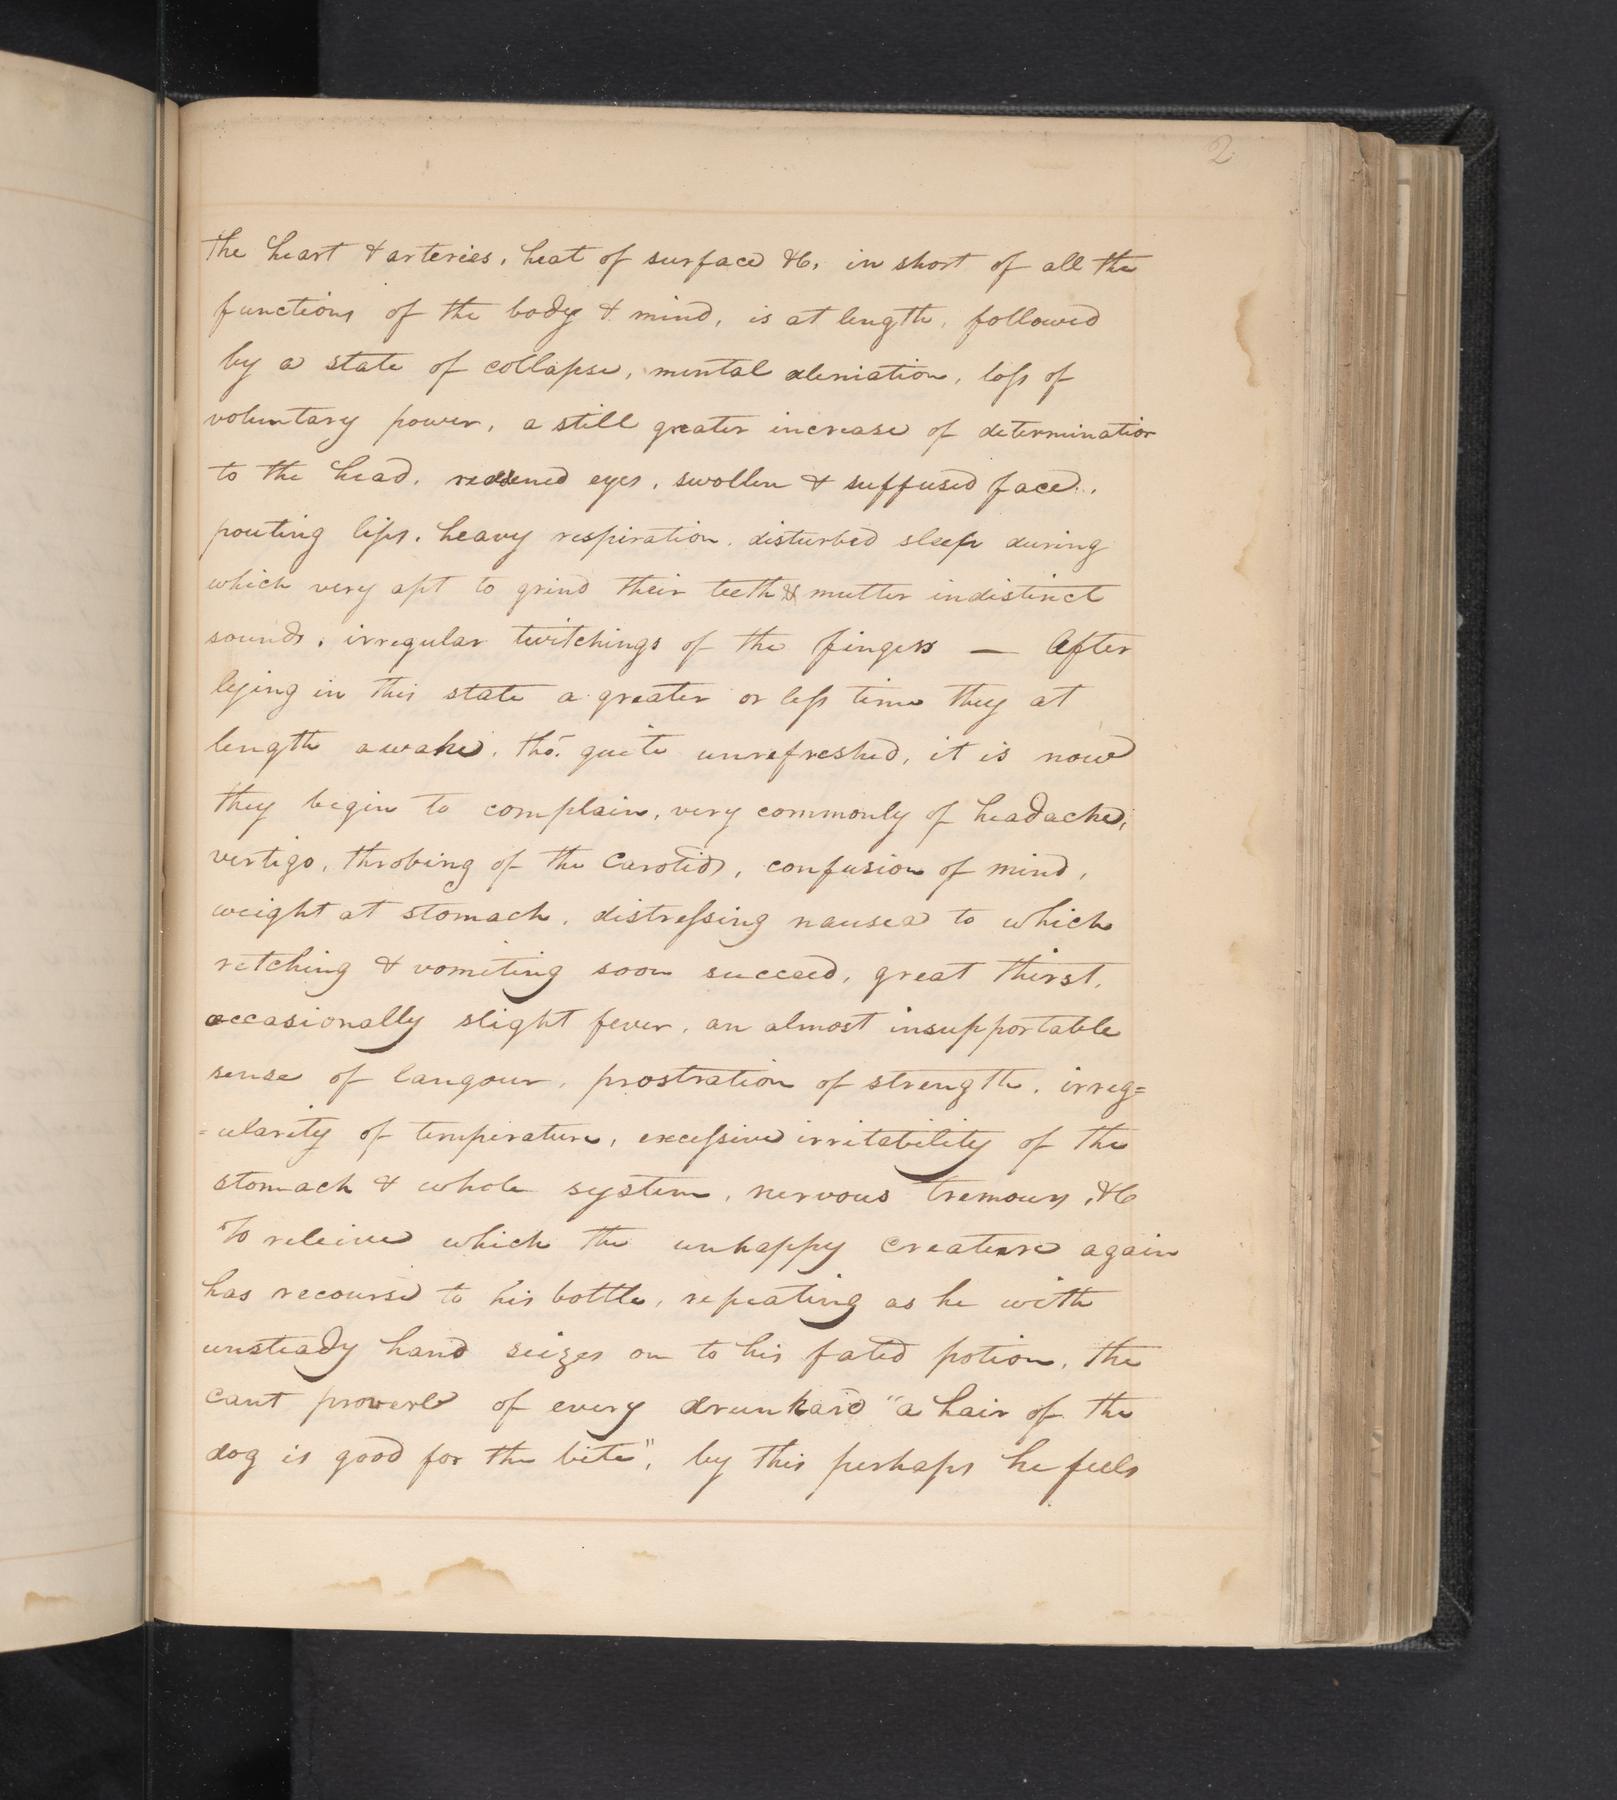 2
the heart & arteries, heat of surface &c, in short of all the
functions of the body & mind, is at length, followed
by a state of collapse, mental aleniation, loss of
voluntary power, a still greater increase of determination
to the head, reddened eyes, swollen & suffused face,
pouting lips, heavy respiration, disturbed sleep during
which very apt to grind their teeth & mutter indistinct
sounds, irregular twitchings of the fingers — After
lying in this state a greater or less time they at
length awake, tho' quite unrefreshed, it is now
they begin to complain, very commonly of headache,
vertigo, throbing of the Carotids, confusion of mind,
weight at stomach, distressing nausea to which
retching & vomiting soon succeed, great thirst,
occasionally slight fever, an almost insupportable
sense of langour, prostration of strength, irreg=
=ularity of temperature, excessive irritability of the
stomach & whole system, nervous tremours, &c
To releive which the unhappy creature again
has recourse to his bottle, repeating as he with
unsteady hand seizes on to his fated potion, the
cant proverb of every drunkard "a hair of the
dog is good for the bite", by this perhaps he feels